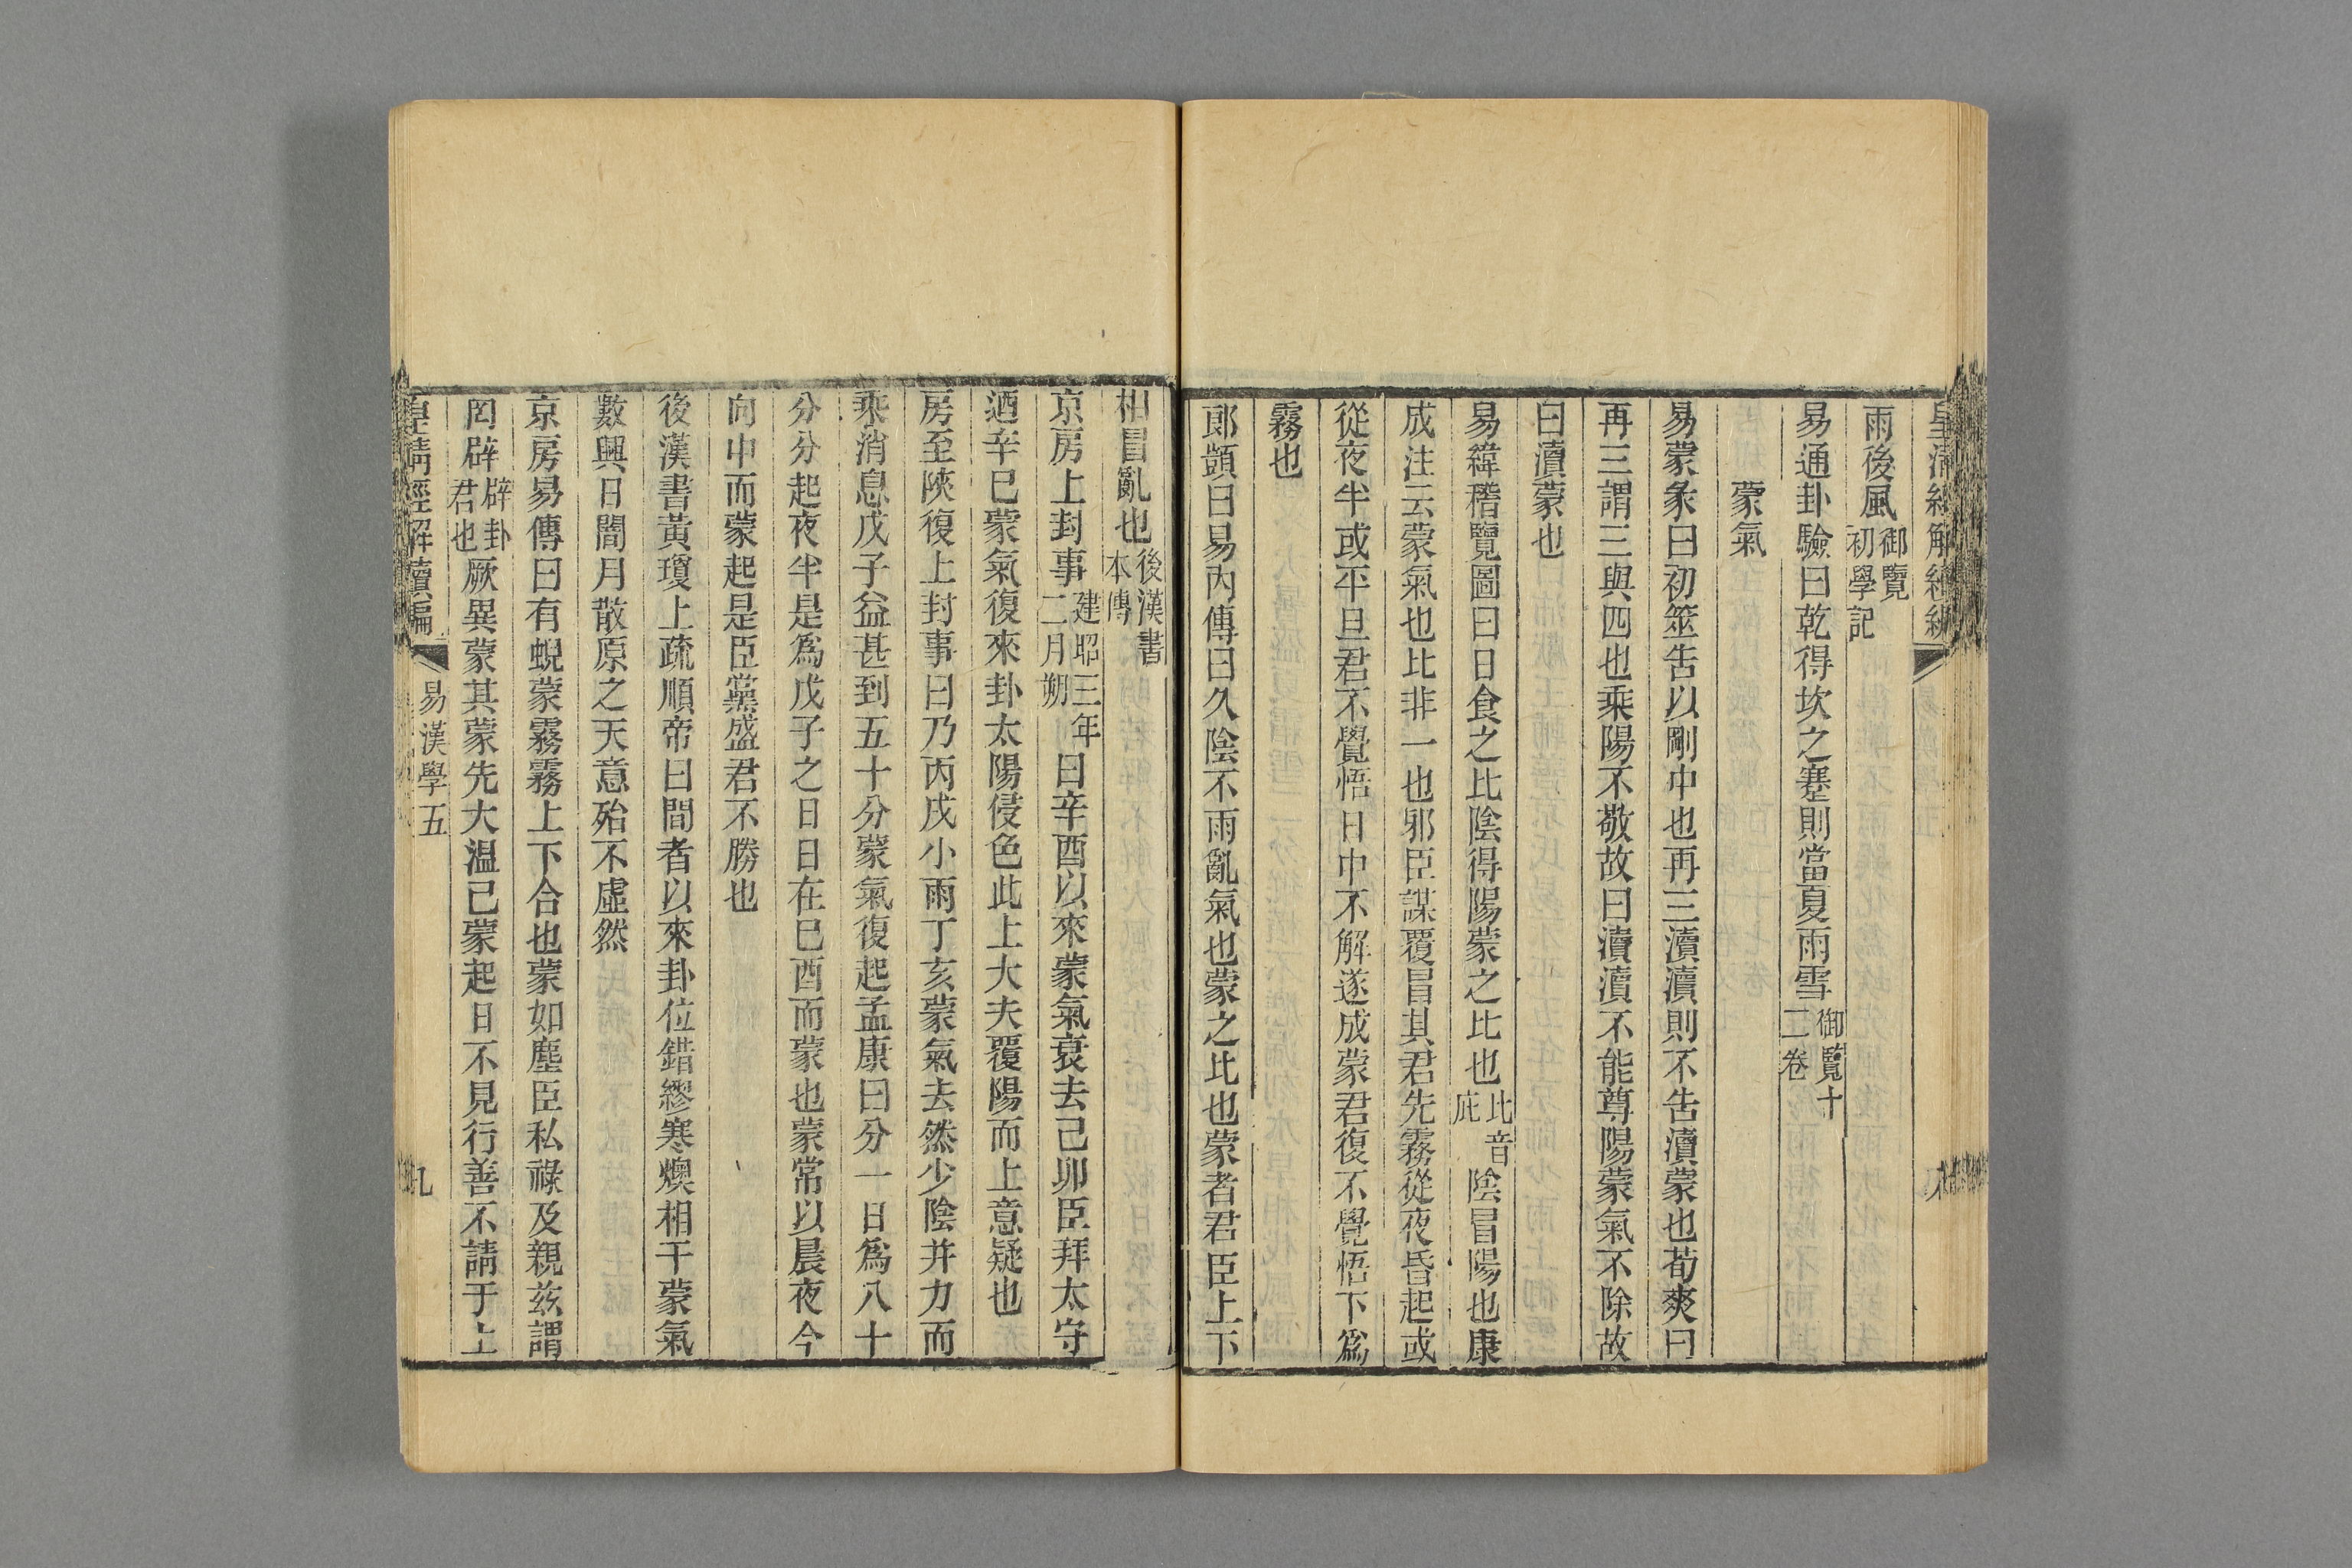 皇清經解續編
雨後風御覽初學記
易通卦驗曰乾得坎之蹇則當夏雨雪御覽十二卷
蒙氣
易蒙彖曰初筮告以剛中也再三瀆瀆則不告瀆蒙也荀爽曰
再三謂三與四也乘陽不敬故曰瀆瀆不能尊陽蒙氣不除故
曰瀆蒙也
易緯稽覽圖曰日食之比陰得陽蒙之比也比音庇陰冒陽也康
成注云蒙氣也比非一也邪臣謀覆冒其君先霧從夜昏起或
從夜半或平旦君不覺悟日中不解遂成蒙君復不覺悟下爲
霧也
郎顗曰易內傳曰久陰不雨亂氣也蒙之比也蒙者君臣上下
相冒亂也後漢書本傳
京房上封事建昭三年二月朔曰辛酉以來蒙氣衰去己卯臣拜太守
迺辛巳蒙氣復來卦太陽侵色此上大夫覆陽而上意疑也
房至陝復上封事曰乃丙戌小雨丁亥蒙氣去然少陰并力而
乘消息戊子益甚到五十分蒙氣復起孟康曰分一日爲八十
分分起夜半是爲戊子之日日在巳酉而蒙也蒙常以晨夜今
向中而蒙起是臣黨盛君不勝也
後漢書黃瓊上疏順帝曰間者以來卦位錯繆寒燠相干蒙氣
數興日闇月散原之天意殆不虛然
京房易傳曰有蜺蒙霧霧上下合也蒙如塵臣私祿及親茲謂
罔辟辟卦君也厥異蒙其蒙先大温已蒙起日不見行善不請于上
皇清經解續編
易漢學五
九